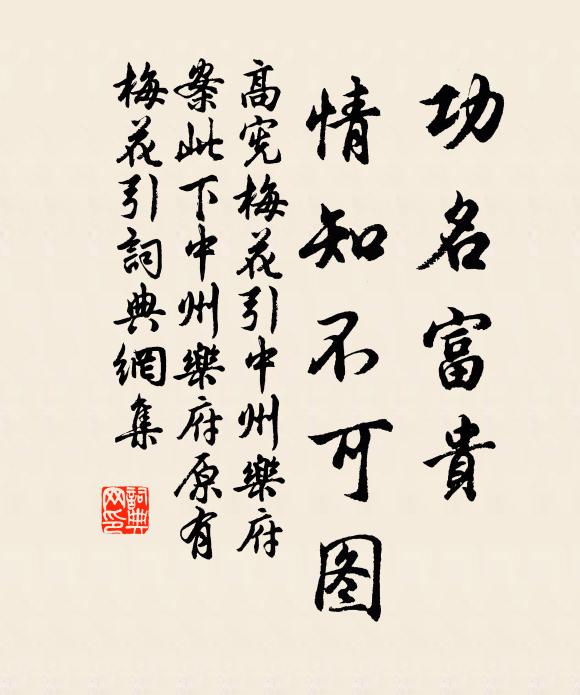 功名富貴
情知不可图
高宪梅花引中州樂府
案此下中州樂府原有
梅花引詞典網集
詞典网印